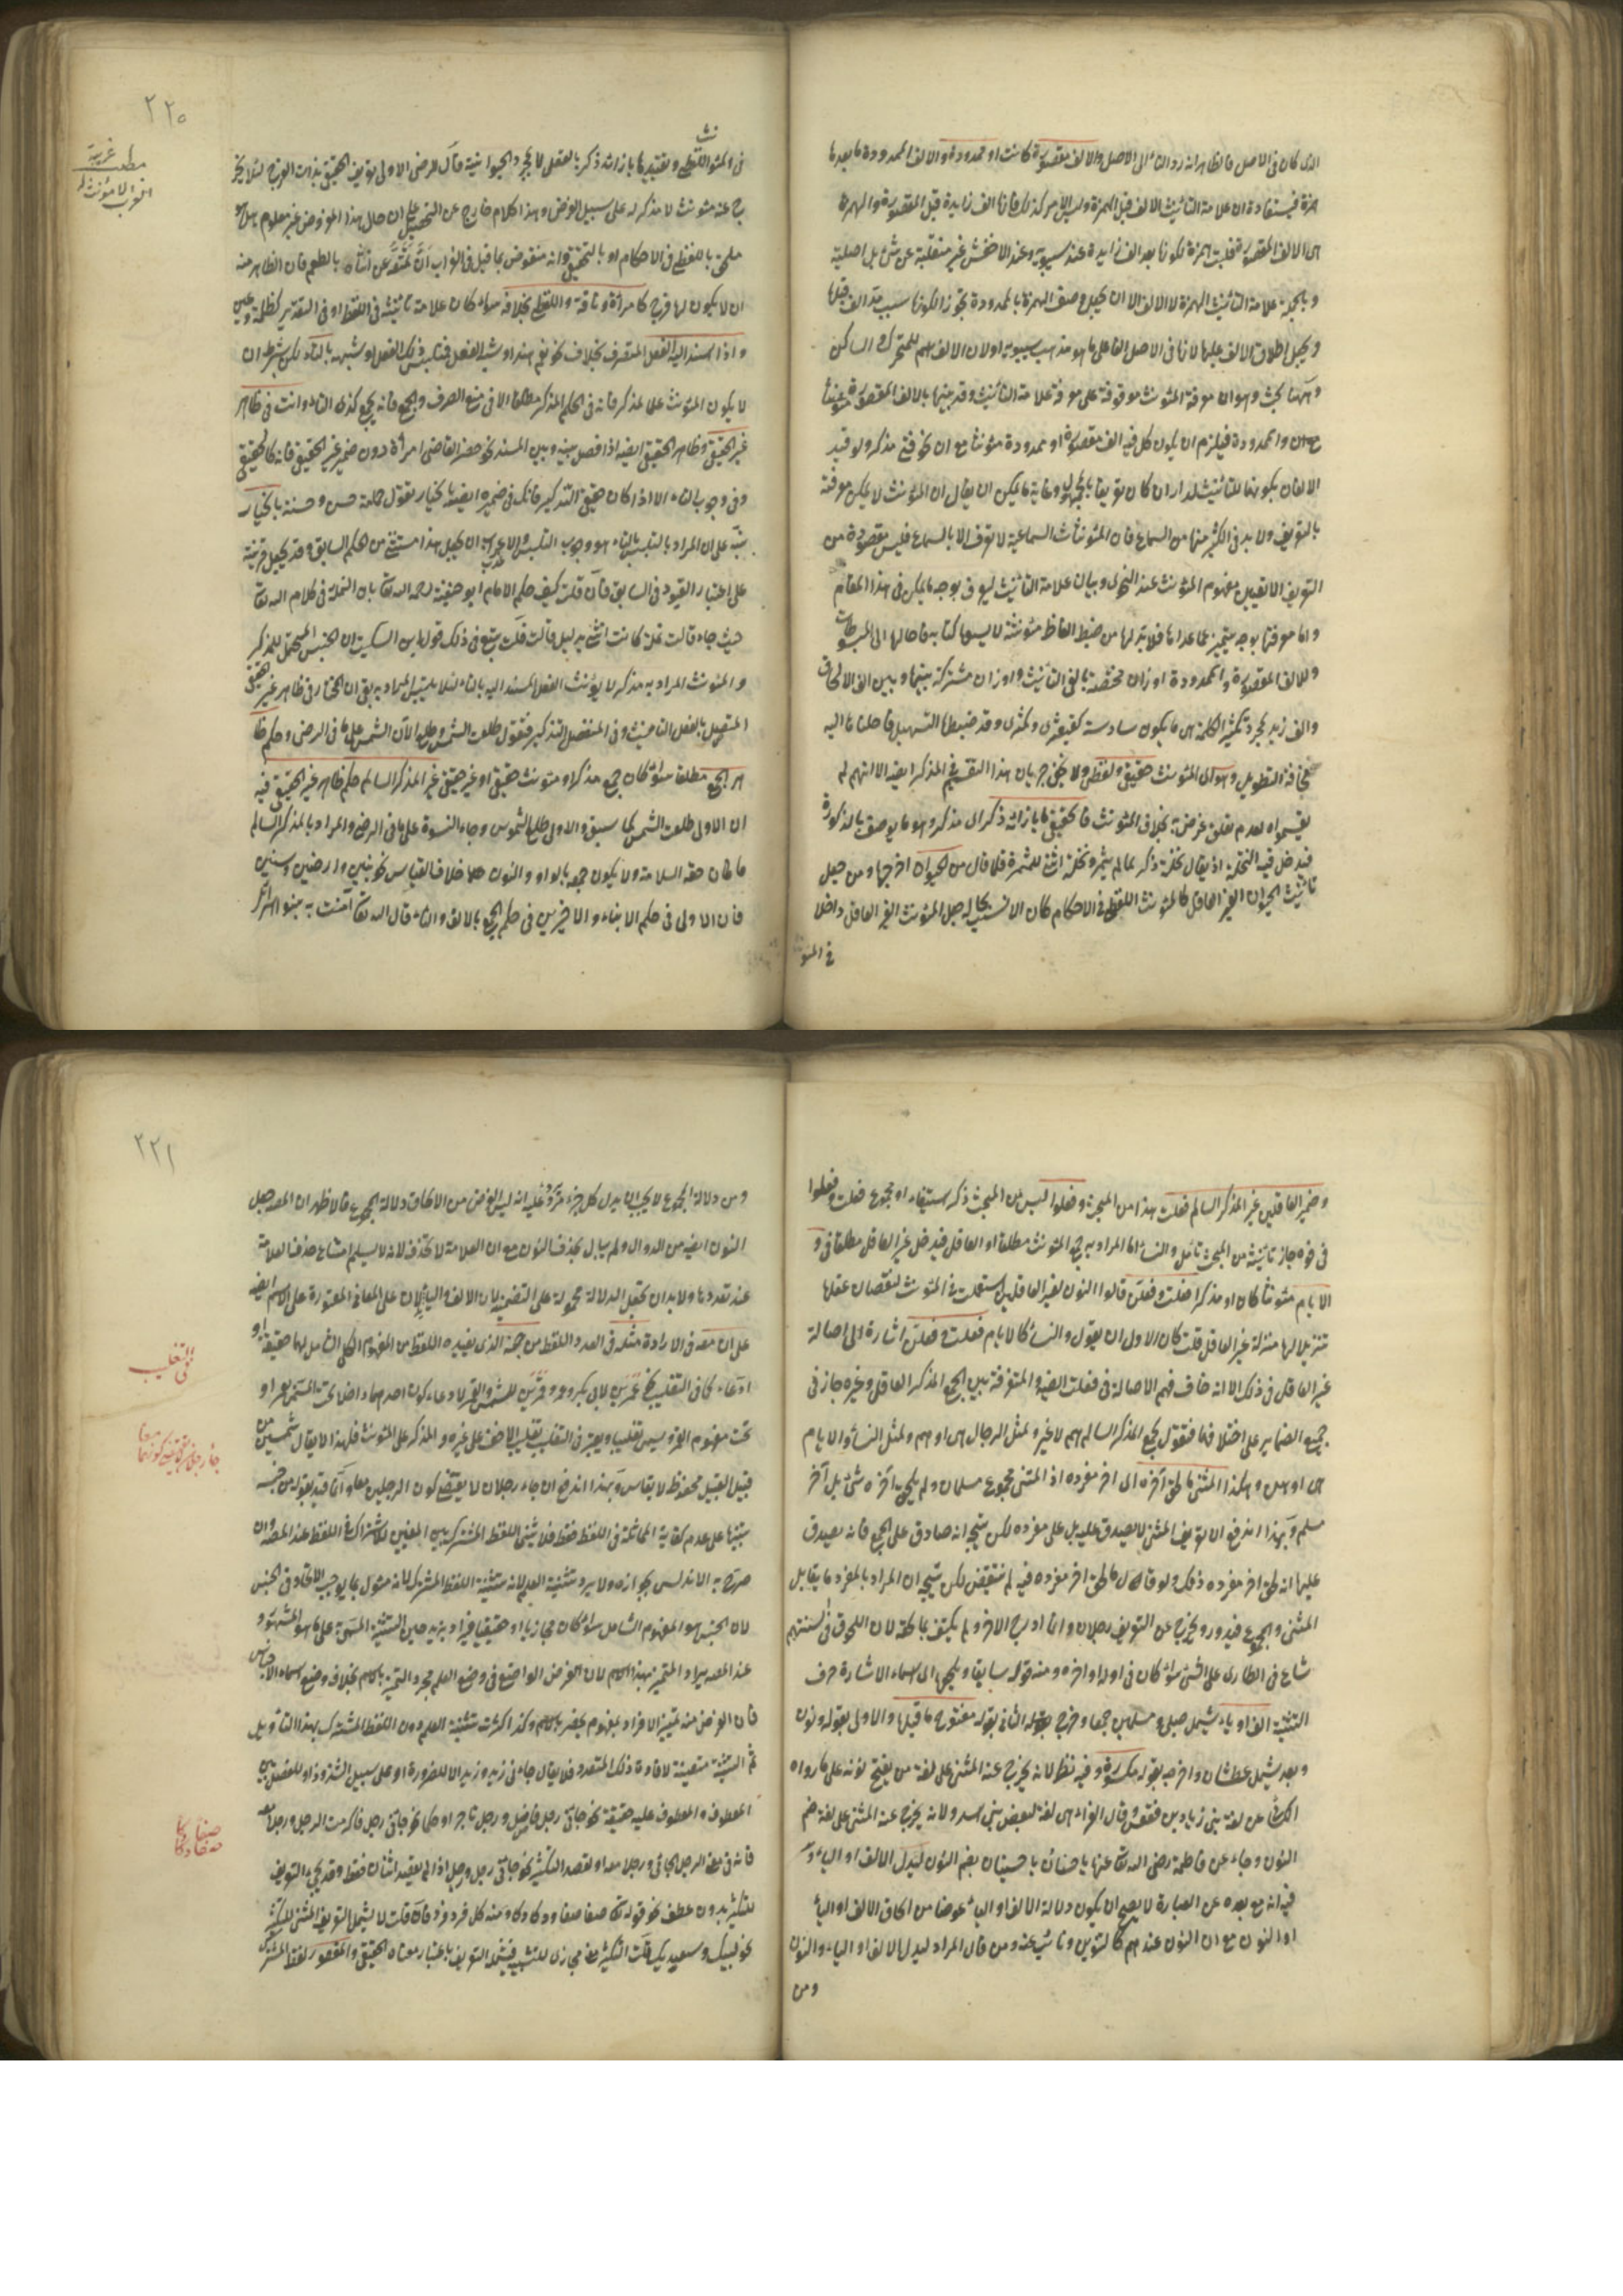 الذى كان فى الاصل فالظاهر انه رد الثانى الى الاصل والالف مقصورة كانت او ممدودة والالف الممدودة ما بعدها
همزة فيستفاد ان علامة التأنيث الالف قبل الهمزة وليس الامر كذلك فانها الف زايدة قبل المقصورة والهمزة
هى الالف المقصورة قلبت همزة لكونها بعد الف زايدة عند سيبويه وعند الاخفش غير منقلبة عن شئ بل اصلية
وبالجملة علامة التأنيث الهمزة لا الالف الا ان يجعل وصف الهمزة بالممدودة تجوزا لكونها سبب مد الف قبلها
ويجعل اطلاق الالف عليها لانها فى الاصل الف على ما هو مذهب سيبويه او لان الالف اسم للمتحرك والساكن
وههنا بحث وهو ان معرفة المؤنث موقوفة على معرفة علامة التأنيث وقد بينها بالالف المقصورة
والممدودة فيلزم ان يكون كل ما فيه الف مقصورة او ممدودة مؤنثا مع ان نحو فتى مذكر ولو قيد
الالفان بكونهما للتأنيث لدار ان كان تعريفا بالمجهول وغاية ما يمكن ان يقال ان المؤنث لا يمكن معرفته
بالتعريف ولا بد فى الكثير منها من السماع فان المؤنثات السماعية لا تعرف الا بالسماع فليس مقصوده من
التعريف الا تعيين مفهوم المؤنث عند النحوى وبيان علامة التأنيث ليعرف بوجه ما يمكن فى هذا المقام
واما معرفتها بوجه يتميز عما عداها فلا بد لها من ضبط الفاظ مؤنثة لا يسعها كتابه فاحالها الى المبسوطات
وللالف المقصورة والممدودة اوزان مختصة بالفى التأنيث واوزان مشتركة بينهما وبين الف الالحاق
والف زيد لمجرد تكثير الكلمة وهى ما يكون سادسة كقبعثرى وكمثرى وقد ضبطها التسهيل فاحلنا اليه
مخافة التطويل وهو اى المؤنث حقيقى ولفظى ولا يخفى جريان هذا التقسيم فى المذكر ايضا الا انهم لم
يقسموه لعدم تعلق غرض به بخلاف المؤنث فالحقيقى ما بازائه ذكر اى مذكر وهو ما يوصف بالذكورة
فيدخل فيه النخلة اذ يقال نخلة ذكر لما لم يثمر ونخلة انثى للمثمرة فلما قال من الحيوان اخرجها ومن جعل
تأنيث الحيوان الغير العاقل كالمؤنث اللفظى فى الاحكام كان الانسب بحاله جعل المؤنث الغير العاقل داخلا
فى المؤ
٢٢٠
مطلب غريبة
الفرب لا مؤنث له
نث
فى المؤنث اللفظى وتقييد ما بازائه ذكر بالعقل لا بمجرد الحيوانية قال الرضى الاولى تعريف الحقيقى بذات الفرج لئلا يخر
ج عنه مؤنث لا مذكر له على سبيل الفرض وهذا كلام خارج عن التحصيل على ان حال هذا المفروض غير معلوم هل هو
ملحق باللفظى فى الاحكام او بالحقيقى وانه منقوض بما قيل
ان لا يكون لها فرج كامرأة وناقة واللفظى بخلافه سواء كان علامة تأنيثه فى اللفظ او فى التقدير كظلمة وعين
واذا اسند اليه الفعل المتصرف بخلاف نحو نعم هند او شبه الفعل فتلبس ذلك الفعل او شبهه بالتاء لكن بشرط ان
لا يكون المؤنث علما لمذكر فانه فى الحكم المذكر مطلقا الا فى منع الصرف والجمع فانه يجمع كذى التاء وانت فى ظاهر
غير الحقيقى وظاهر الحقيقى ايضا اذا فصل بينه وبين المسند نحو حضر القاضى امرأة دون ضمير غير الحقيقى فانه كالحقيقى
وفى وجوب التاء الا اذا كان حقيقى التذكير فانك فى ضميره ايضا بالخيار تقول طلحة حسن وحسنة بالخيار
نبه على ان المراد بالتلبس بالتاء هو وجوب التلبس والا يجب ان يجعل هذا مستثنى من حكم السابق وقد يجعل قرينة
على اعتبار القيود فى السابق فان قلت كيف حكم الامام ابو حنيفة رحمه الله تعالى بان النملة فى كلام الله تعالى
حيث جاء قالت نملة كانت انثى بدليل قالت قلت تبع فى ذلك قول ابن السكيت ان الجنس المحتمل للمذكر
والمؤنث المراد به مذكر لا يؤنث الفعل المسند اليه بالتاء لئلا يلتبس المراد به بقى ان المختار فى ظاهر غير الحقيقى
المتصل بالفعل التأنيث وفى المنفصل التذكير فتقول طلعت الشمس وطلع الآن الشمس على ما فى الرضى وحكم ظا
هر الجمع مطلقا سواء كان جمع مذكر او مؤنث حقيقى او غير حقيقى غير المذكر السالم حكم ظاهر غير الحقيقى فيه
ان الاولى طلعت الشمس كما سبق والاولى طلع الشموس وجاء النسوة على ما فى الرضى والمراد بالمذكر السالم
ما كان حقه السلامة ولا يكون جمعه بالواو والنون على خلاف القياس نحو بنين وارضين وسنين
فان الاولى فى حكم الابناء والاخيرين فى حكم الجمع بالالف والتاء قال الله تعالى آمنت به بنو اسرائيل
وضمير العاقلين غير المذكر السالم فعلت هذا من المبحث وفعلوا ليس من المبحث ذكره استيفاء او مجموع فعلت وفعلوا
فى نحوه جاز تأنيثه من المبحث تأمل والنساء اما المراد به جمع المؤنث مطلقا او العاقل فيدخل غير العاقل مطلقا فى و
الايام مؤنثا كان او مذكرا فعلت وفعلن قالوا النون لغير العاقل بل استعملت فى المؤنث لنقصان عقلها
تنزيلا لها منزلة غير العاقل قلت كان الاولى ان يقول والنساء كالايام فعلت وفعلن اشارة الى اصالة
غير العاقل فى ذلك الا انه خاف فهم الاصالة فى فعلت ايضا والمتفرقة بين الجمع المذكر العاقل وغيره جاز فى
جميع الضماير على اختلافها فتقول لجمع المذكر السالم هم لا غير ولمثل الرجال هى او هم ولمثل النساء والايام
هى او هن وهكذا المثنى ما لحق آخره اى اخر مفرده اذ المثنى مجموع مسلمان ولم يلحق آخره شئ بل آخر
مسلم وبهذا اندفع ان تعريف المثنى لا يصدق عليه بل على مفرده لكن يتجه انه صادق على الجمع فانه يصدق
عليها انه لحق اخر مفرده ذلك ولو قال ما لحق اخر مفرده فيه لم ينتقض لكن يتجه ان المراد بالمفرد ما يقابل
المثنى والمجموع فيدور ويخرج عن التعريف رجلان وانما ادرج الاخر ولم يكتف بما لحقه لان اللحوق فى السنتهم
شاع فى الطارى على الشئ سواء كان فى اوله او اخره ومنه قوله سابقا ويلحق الى اسماء الاشارة حرف
التثنية الف او ياء يشمل حبلى ومسلمين جمعا وخرج بقوله الثانى بقوله مفتوح ما قبلها والاولى بقوله ونون
وبعد يشمل عطشان واخرجه بقوله مكسورة وفيه نظر لانه يخرج عنه المثنى على لغة من يفتح نونه على ما رواه
الكسائى عن لغة بنى زياد بن فقعس وقال الفراء هى لغة لبعض بنى اسد ولانه يخرج عنه المثنى على لغة ضم
النون وجاء عن فاطمة رضى الله تعالى عنها يا حسنان يا حسينان بضم النون ليدل الالف او الياء و
فيه انه مع بعده عن العبارة لا يصح ان يكون دلالة الالف او الياء عوضا من الحاق الالف او الياء
او النون مع ان النون عندهم كالتنوين وناشئ عنه ومن قال المراد ليدل الالف او الياء والنون
ومن
٢٢١
ومن دلالة المجموع لا يجب ان يدل كل جزء عليه انه ليس الغرض من الالحاق دلالة المجموع فالاظهر ان المص جعل
النون ايضا من الدوال ولم يبال بحذف النون مع ان العلامة لا تحذف لانه لا يسلم امتناع حذف العلامة
عند تعددها ولا بد ان تجعل الدلالة محمولة على التضمنية لان الالف والياء يدلان على المعانى المعتورة على الاسم ايضا
على ان معه فى الارادة مثله فى العدد واللفظ من جنسه الذى يفيده اللفظ من المفهوم الكلى الشامل لهما حقيقة او
ادعاء كما فى التغليب نحو عمرين لابى بكر وعمر وقمرين للشمس والقمر لادعاء كون احدهما داخلا تحت المسمى بعمر او
تحت مفهوم القمر ويسمى تغليبا ويعتبر فى التغليب تغليب الاخف على غيره والمذكر على المؤنث فلهذا لا يقال شمسين من
قبيل القبيل محفوظ لا يقاس وبهذا اندفع ان جاء رجلان لا يقتضى كون الرجلين معا وانما قيد بقوله من جنسه
تنبيها على عدم كفاية المماثلة فى اللفظ فقط فلا يثنى اللفظ المشترك بين المعنيين للاشتراك فى اللفظ عند المص وان
صرح به الاندلسى بجوازه ولا يرد تثنية العلم لانه تثنية اللفظ المشترك لانه مئول بما يوجب الاتحاد فى الجنس
لان الجنس هو المفهوم الشامل سواء كان مجازيا او حقيقيا
عند المص يراد المتميز بهذا الاسم لان الغرض الواضع فى وضع العلم مجرد التميز بالاسم بخلاف وضع اسماء الاجناس
فان الغرض منه تمييز الافراد بمفهوم يحضر بالاسم ولذا كثرت تثنية العلم دون اللفظ المشترك بهذا التأويل
ثم التثنية متعينة لافادة ذلك المتعدد فلا يقال جاءنى زيد وزيد الا للضرورة او على سبيل الشذوذ او للفصل بين
المعطوف والمعطوف عليه حقيقة نحو جاءنى رجل فاضل ورجل تاجر او حكما نحو جاءنى رجل فاكرمت الرجل ورجلا معه
فانه فى معنى الرجل الجائى ورجلا معه او لقصد التكثير نحو جاءنى رجل ورجل اذا لم يقصد اثنان فقط وقد يجئ التعريف
للتكثير بدون عطف نحو قوله تعالى صفا صفا ودكا دكا ومنه كل فرد فرد فان قلت لا يشمل التعريف المثنى للتكثير
نحو لبيك وسعديك قلت التكثير معنى مجازى للتثنية فيشمله التعريف باعتبار معناه الحقيقى والمقصور لفظ المشترك
فى التغليب
جاء رجلان لا يقتضى كونهما معا
صفا صفا
دكا دكا